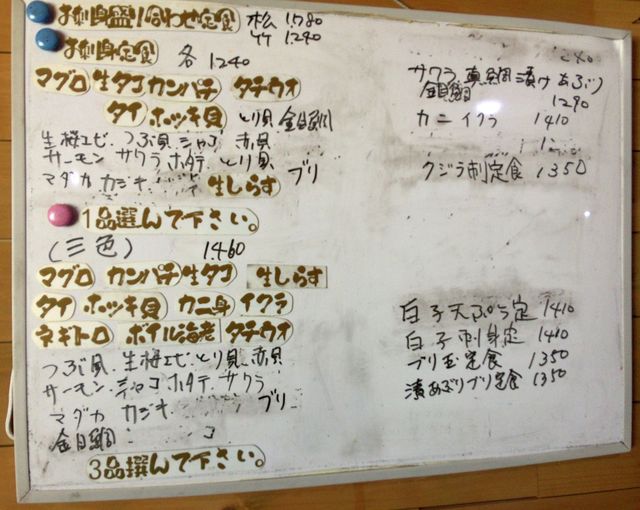 お刺身盛り合わせ定食 松 1.780
竹 1.240
お刺身定食 各 1.240
マグロ 生タコ カンパチ タチウオ
タイ ホッキ貝 とり貝 金目鯛
生桜エビ つぶ貝 シャコ 赤貝
サーモン サワラ ホタテ とり貝
マダカ カジキ 生しらす ブリ
1品選んで下さい。
(三色) 1.460
マグロ カンパチ 生タコ 生しらす
タイ ホッキ貝 カニ身 イクラ
ネギトロ ボイル海老 タチウオ
つぶ貝 生桜エビ とり貝 赤貝
サーモン シャコ ホタテ サワラ
マダカ カジキ ブリ
金目鯛
3品選んで下さい。
サワラ 真鯛 漬け あぶり
金目鯛 1290
カニ イクラ 1410
クジラ刺定食 1350
白子天ぷら定 1410
白子刺身定 1410
ブリ 定食 1350
漬あぶりブリ定食 1350